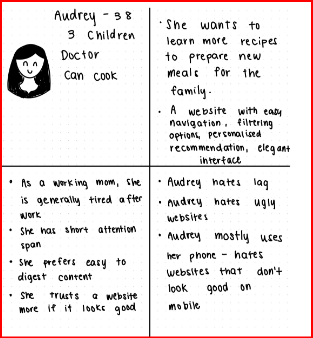 Audrey - 38
3 Children
Doctor
Can cook
• She wants to
learn more recipes
to prepare new
meals for the
family.
• A website with easy
navigation, filtering
options, personalised
recommendation, elegant
interface
• As a working mom, she
is generally tired after
work
• She has short attention
span
• She prefers easy to
digest content
• She trusts a website
more if it looks good
• Audrey hates lag
• Audrey hates ugly
websites
• Audrey mostly uses
her phone - hates
websites that don't
look good on
mobile